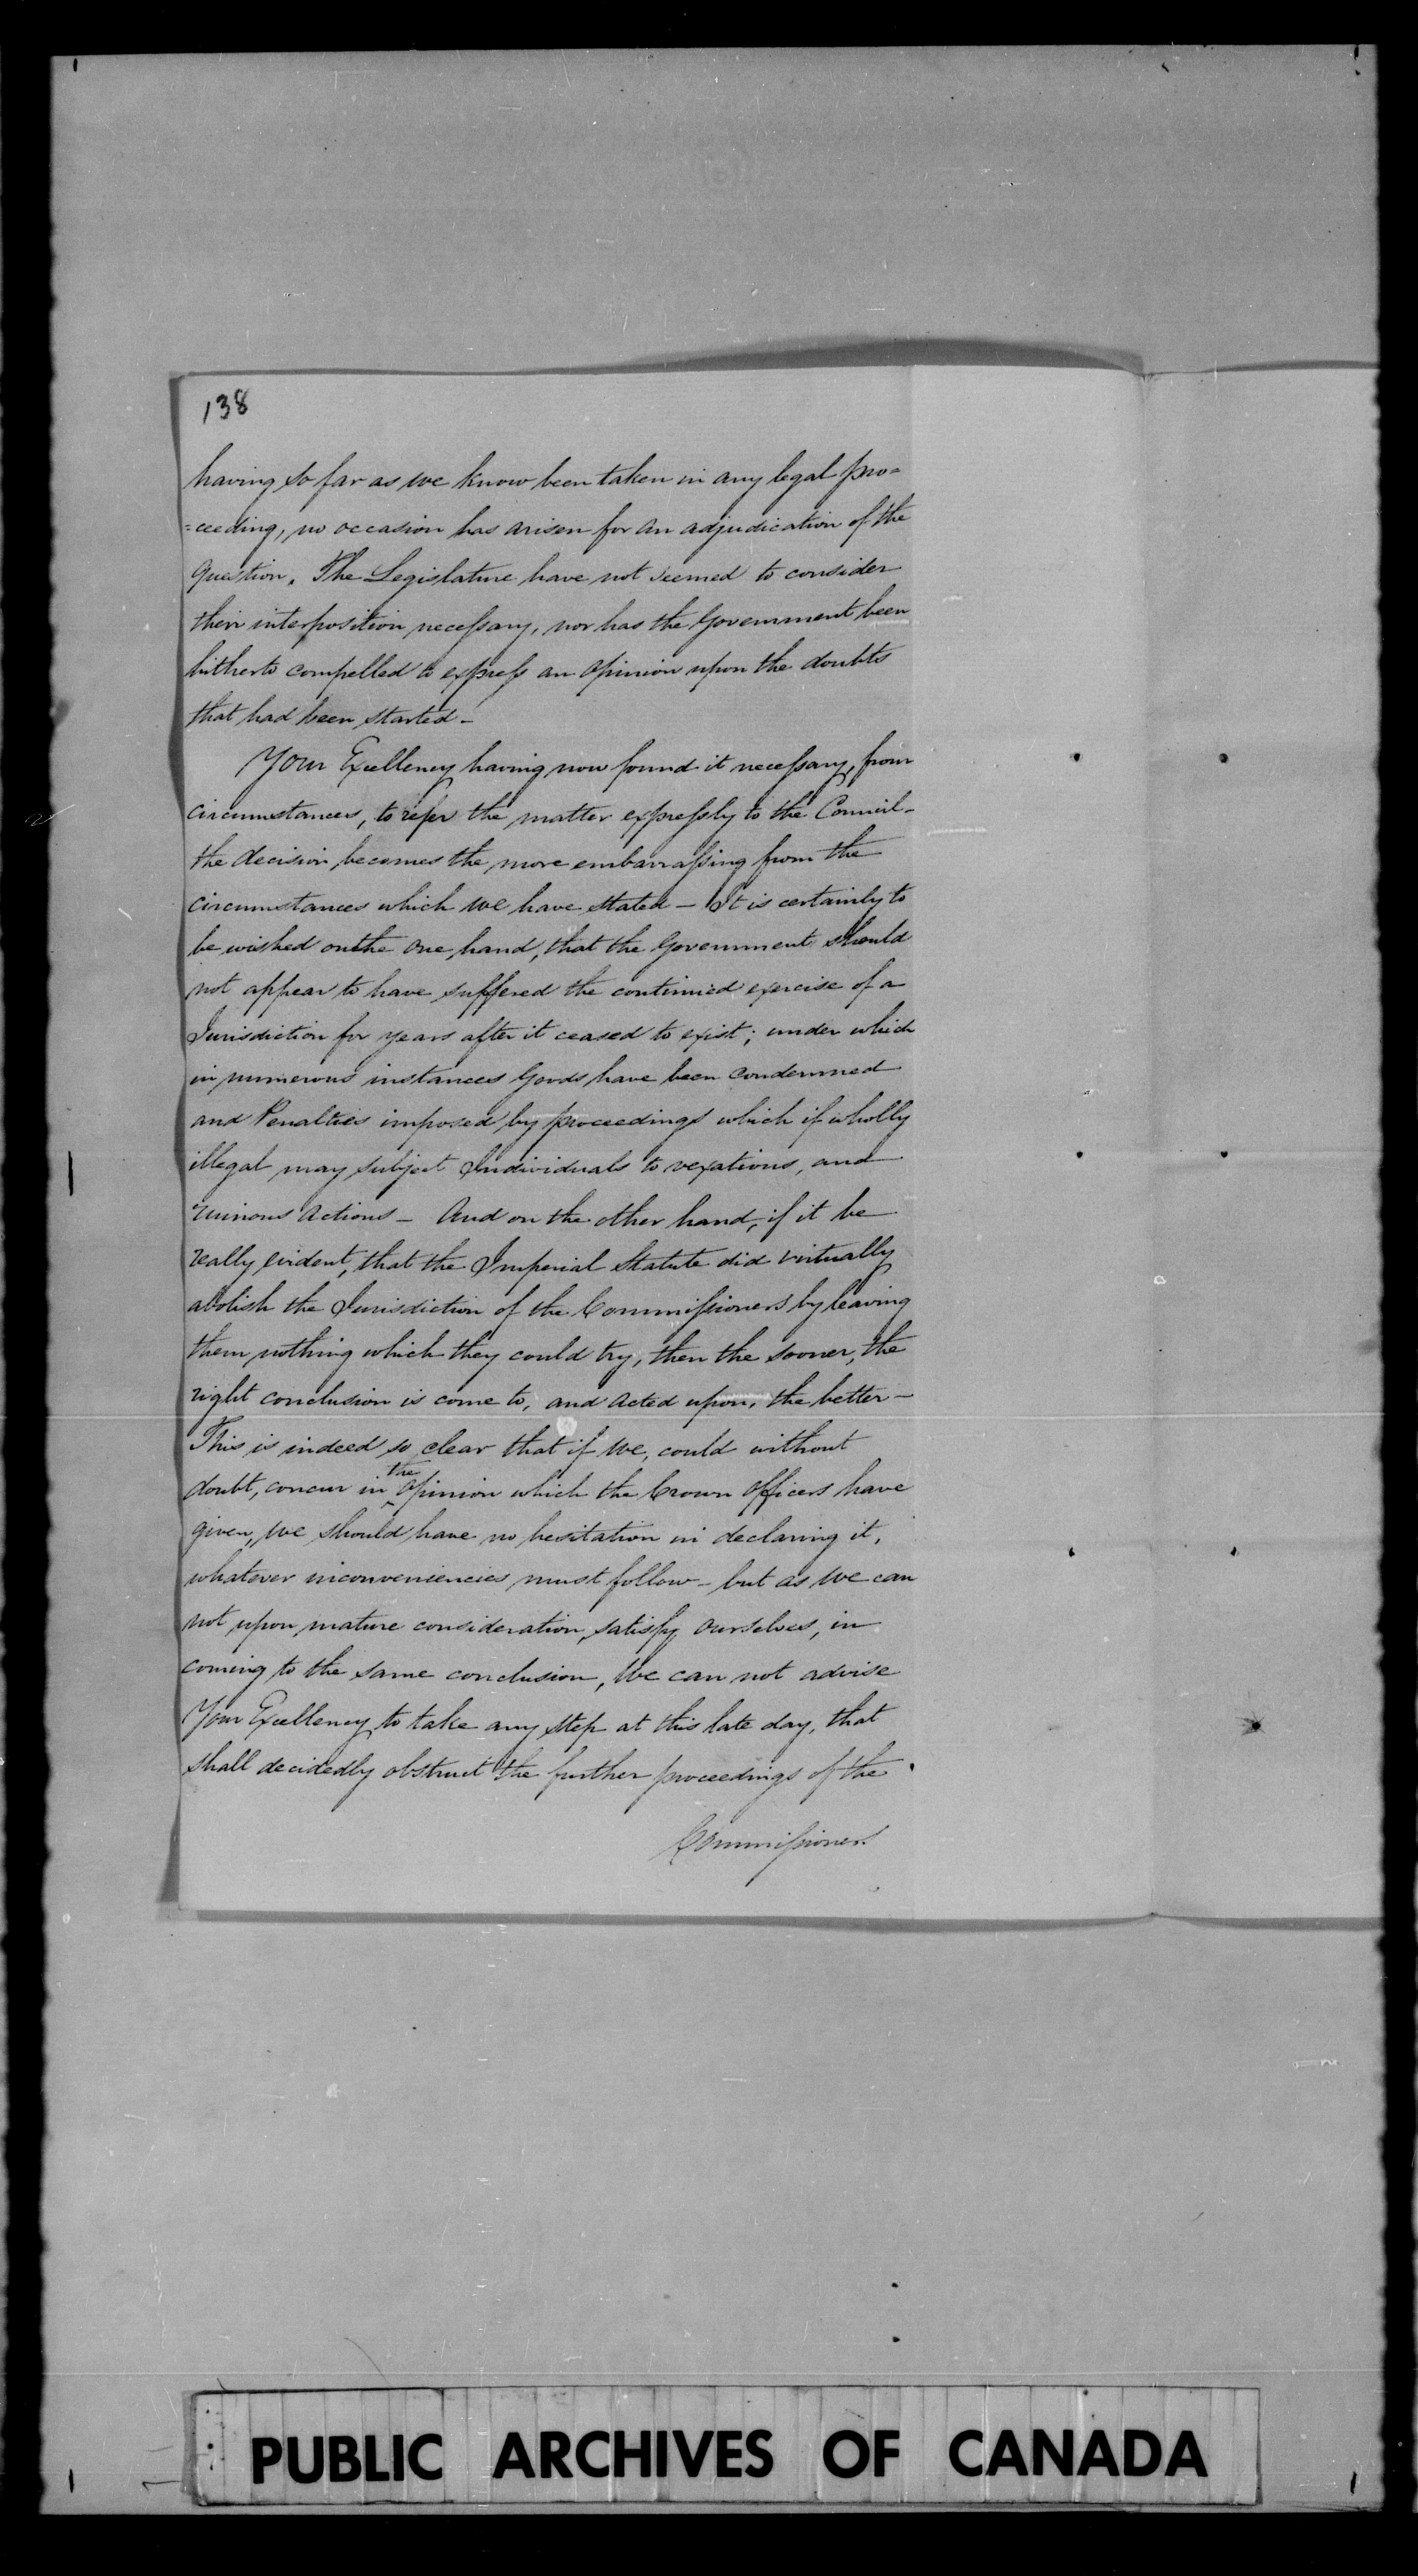 138
having so far as we know been taken in any legal pro=
=ceeding, no occasion has arisen for an adjudication of the
question. The Legislature have not seemed to consider
their interposition necessary, nor has the Government been
hitherto compelled to express an opinion upon the doubts
that had been started –
Your Excellency having now found it necessary, from
circumstances, to refer the matter expressly to the Council –
the decision becomes the more embarrassing from the
circumstances which we have stated – It is certainly to
be wished on the one hand, that the Government should
not appear to have suffered the continued exercise of a
Jurisdiction for years after it ceased to exist; under which
in numerous instances Goods have been condemned
and Penalties imposed by proceedings which if wholly
illegal may subject Individuals to vexatious, and
ruinous actions – And on the other hand, if it be
really evident, that the Imperial Statute did virtually
abolish the Jurisdiction of the Commissioners by leaving
them nothing which they could try, then the sooner, the
right conclusion is come to, and acted upon, the better –
This is indeed so clear that if we, could without
doubt, concur in the opinion which the Crown Officers have
given, we should have no hesitation in declaring it,
whatever inconveniencies must follow – but as we can
not upon mature consideration, satisfy ourselves, in
coming to the same conclusion, we can not advise
Your Excellency to take any step at this late day, that
shall decidedly obstruct the further proceedings of the
Commissioners
PUBLIC ARCHIVES OF CANADA